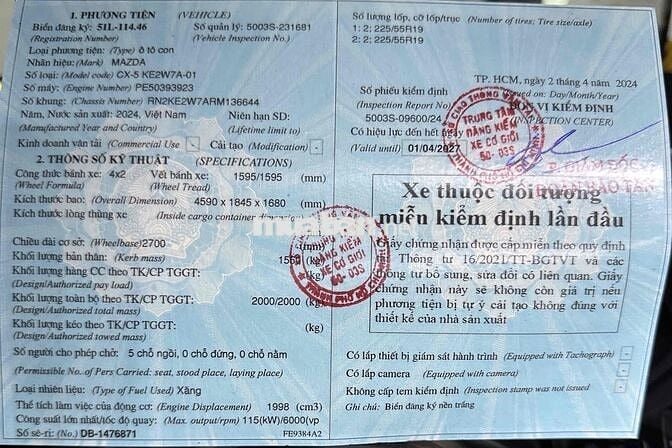 1. PHƯƠNG TIỆN (VEHICLE)
Biển đăng ký: 51L-114.46 Số quản lý: 5003S-231681
(Registration Number) (Vehicle Inspection No.)
Loại phương tiện: (Type) ô tô con
Nhãn hiệu: (Mark) MAZDA
Số loại: (Model code) CX-5 KE2W7A-01
Số máy: (Engine Number) PE50393923
Số khung: (Chassis Number) RN2KE2W7ARM136644
Năm, Nước sản xuất: 2024, Việt Nam Niên hạn SD:
(Manufactured Year and Country) (Lifetime limit to)
Kinh doanh vận tải (Commercial Use) - Cải tạo (Modification) -
2. THÔNG SỐ KỸ THUẬT (SPECIFICATIONS)
Công thức bánh xe: 4x2 Vết bánh xe: 1595/1595 (mm)
(Wheel Formula) (Wheel Tread)
Kích thước bao: (Overall Dimension) 4590 x 1845 x 1680 (mm)
Kích thước lòng thùng xe (Inside cargo container (mm)
Chiều dài cơ sở: (Wheelbase) 2700 (mm)
Khối lượng bản thân: (Kerb mass) (kg)
Khối lượng hàng CC theo TK/CP TGGT: (kg)
(Design/Authorized pay load)
Khối lượng toàn bộ theo TK/CP TGGT: 2000/2000 (kg)
(Design/Authorized total mass)
Khối lượng kéo theo TK/CP TGGT: (kg)
(Design/Authorized towed mass)
Số người cho phép chở: 5 chỗ ngồi, 0 chỗ đứng, 0 chỗ nằm
(Permissible No. of Pers Carried: seat, stood place, laying place)
Loại nhiên liệu: (Type of Fuel Used) Xăng
Thể tích làm việc của động cơ: (Engine Displacement) 1998 (cm3)
Công suất lớn nhất/tốc độ quay: (Max. output/rpm) 115(kW)/6000(vp
Số sê-ri: (No) DB-1476871 FE9384A2
Số lượng lốp, cỡ lốp/trục (Number of tires; Tire size/axle)
1: 2; 225/55R19
2: 2; 225/55R19
TP. HCM, ngày 2 tháng 4 năm 2024
Số phiếu kiểm định (Issued on: Day/Month/Year)
(Inspection Report No) ĐƠN VỊ KIỂM ĐỊNH
5003S-09600/24 (INSPECTION CENTER)
Có hiệu lực đến hết ngày
(Valid until) 01/04/2027
BỘ GIAO THÔNG VẬN
TRUNG TÂM
ĐĂNG KIỂM
XE CƠ GIỚI
50-03S
P. GIÁM ĐỐC
Xe thuộc đối tượng
miễn kiểm định lần đầu
Giấy chứng nhận được cấp miễn theo quy định
tại Thông tư 16/2021/TT-BGTVT và các
thông tư bổ sung, sửa đổi có liên quan. Giấy
chứng nhận này sẽ không còn giá trị nếu
phương tiện bị tự ý cải tạo không đúng với
thiết kế của nhà sản xuất
ĐĂNG KIỂM
XE CƠ GIỚI
50-03S
Có lắp thiết bị giám sát hành trình (Equipped with Tachograph) -
Có lắp camera (Equipped with camera) -
Không cấp tem kiểm định (Inspection stamp was not issued) -
Ghi chú: Biển đăng ký nền trắng